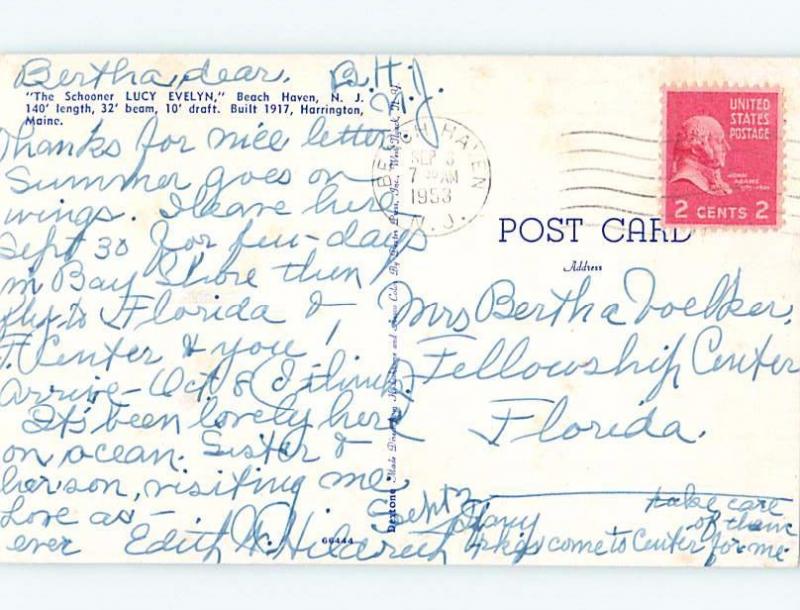 Bertha, dear. B.H.
N.J.
"The Schooner LUCY EVELYN," Beach Haven, N. J.
140' length, 32' beam, 10' draft. Built 1917, Harrington,
Maine.
Thanks for nice letter
Summer goes on
wings. I leave here
Sept 30 for few-days
in Bay Shore then
fly to Florida &
F. Center & you!
Arrive - Oct 8 I think
It's been lovely here
on ocean. Sister &
her son, visiting me.
Love as -
ever Edith W. Hildreth
Sept 2
66444
Dextone
BEACH HAVEN
SEP 3
7 30 AM
1953
N. J.
UNITED
STATES
POSTAGE
JOHN
ADAMS
2 CENTS 2
POST CARD
Address
Mrs Bertha Voelker.
Fellowship Center
Florida.
take care
of them
pkgs come to Center for me